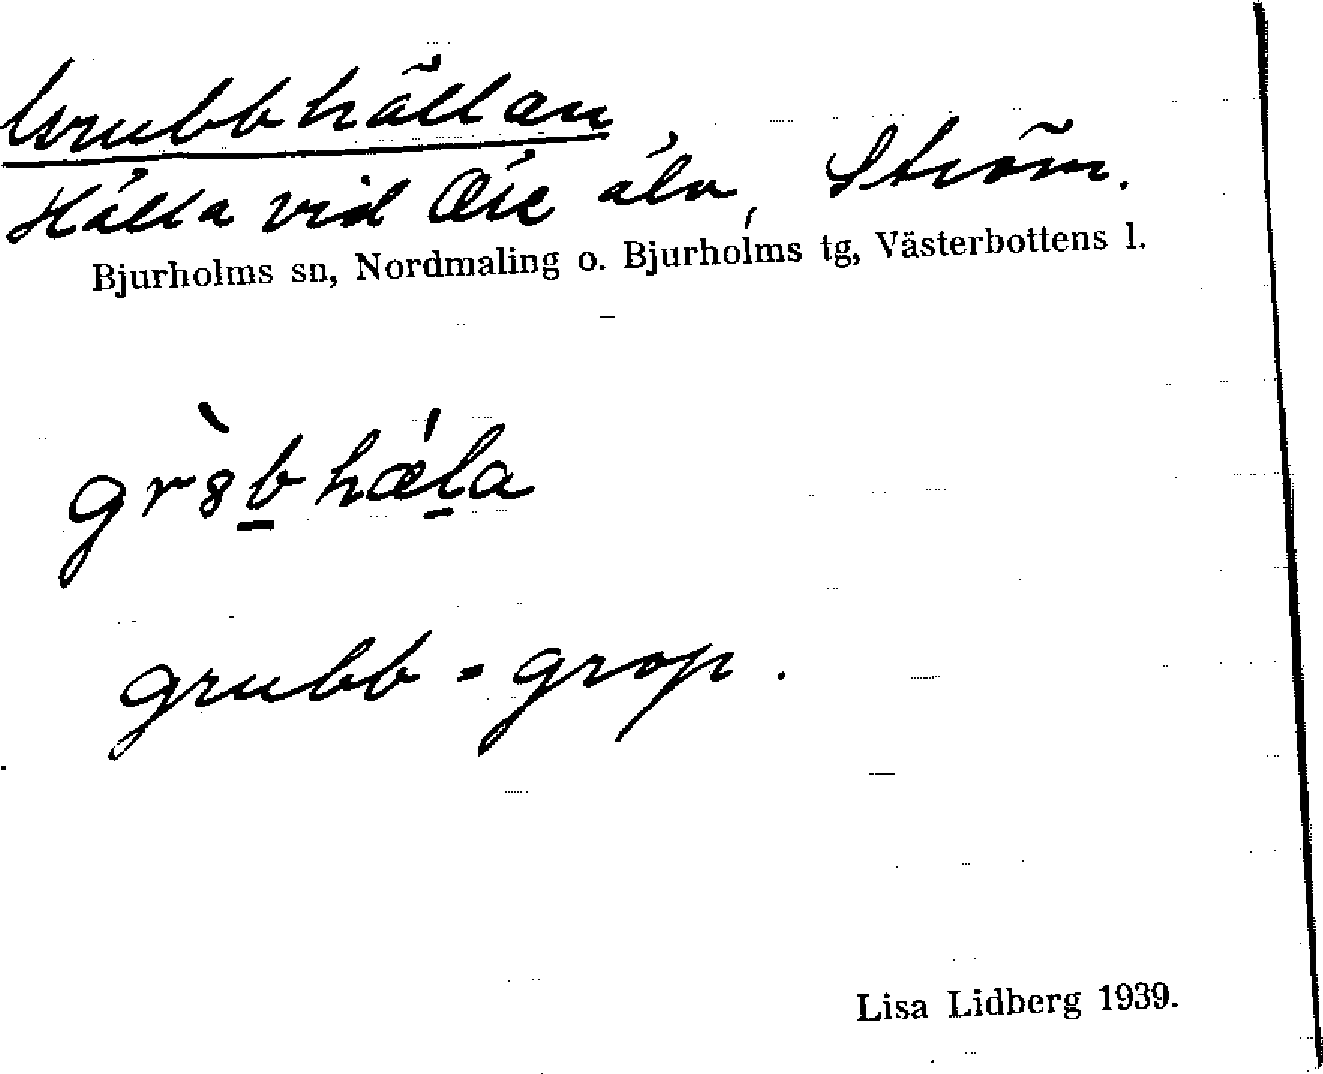 Grubbhällan
Hälla vid Öre älv, Ström.
Bjurholms sn, Nordmaling o. Bjurholms tg, Västerbottens l.
grubb = grop.
Lisa Lidberg 1939.